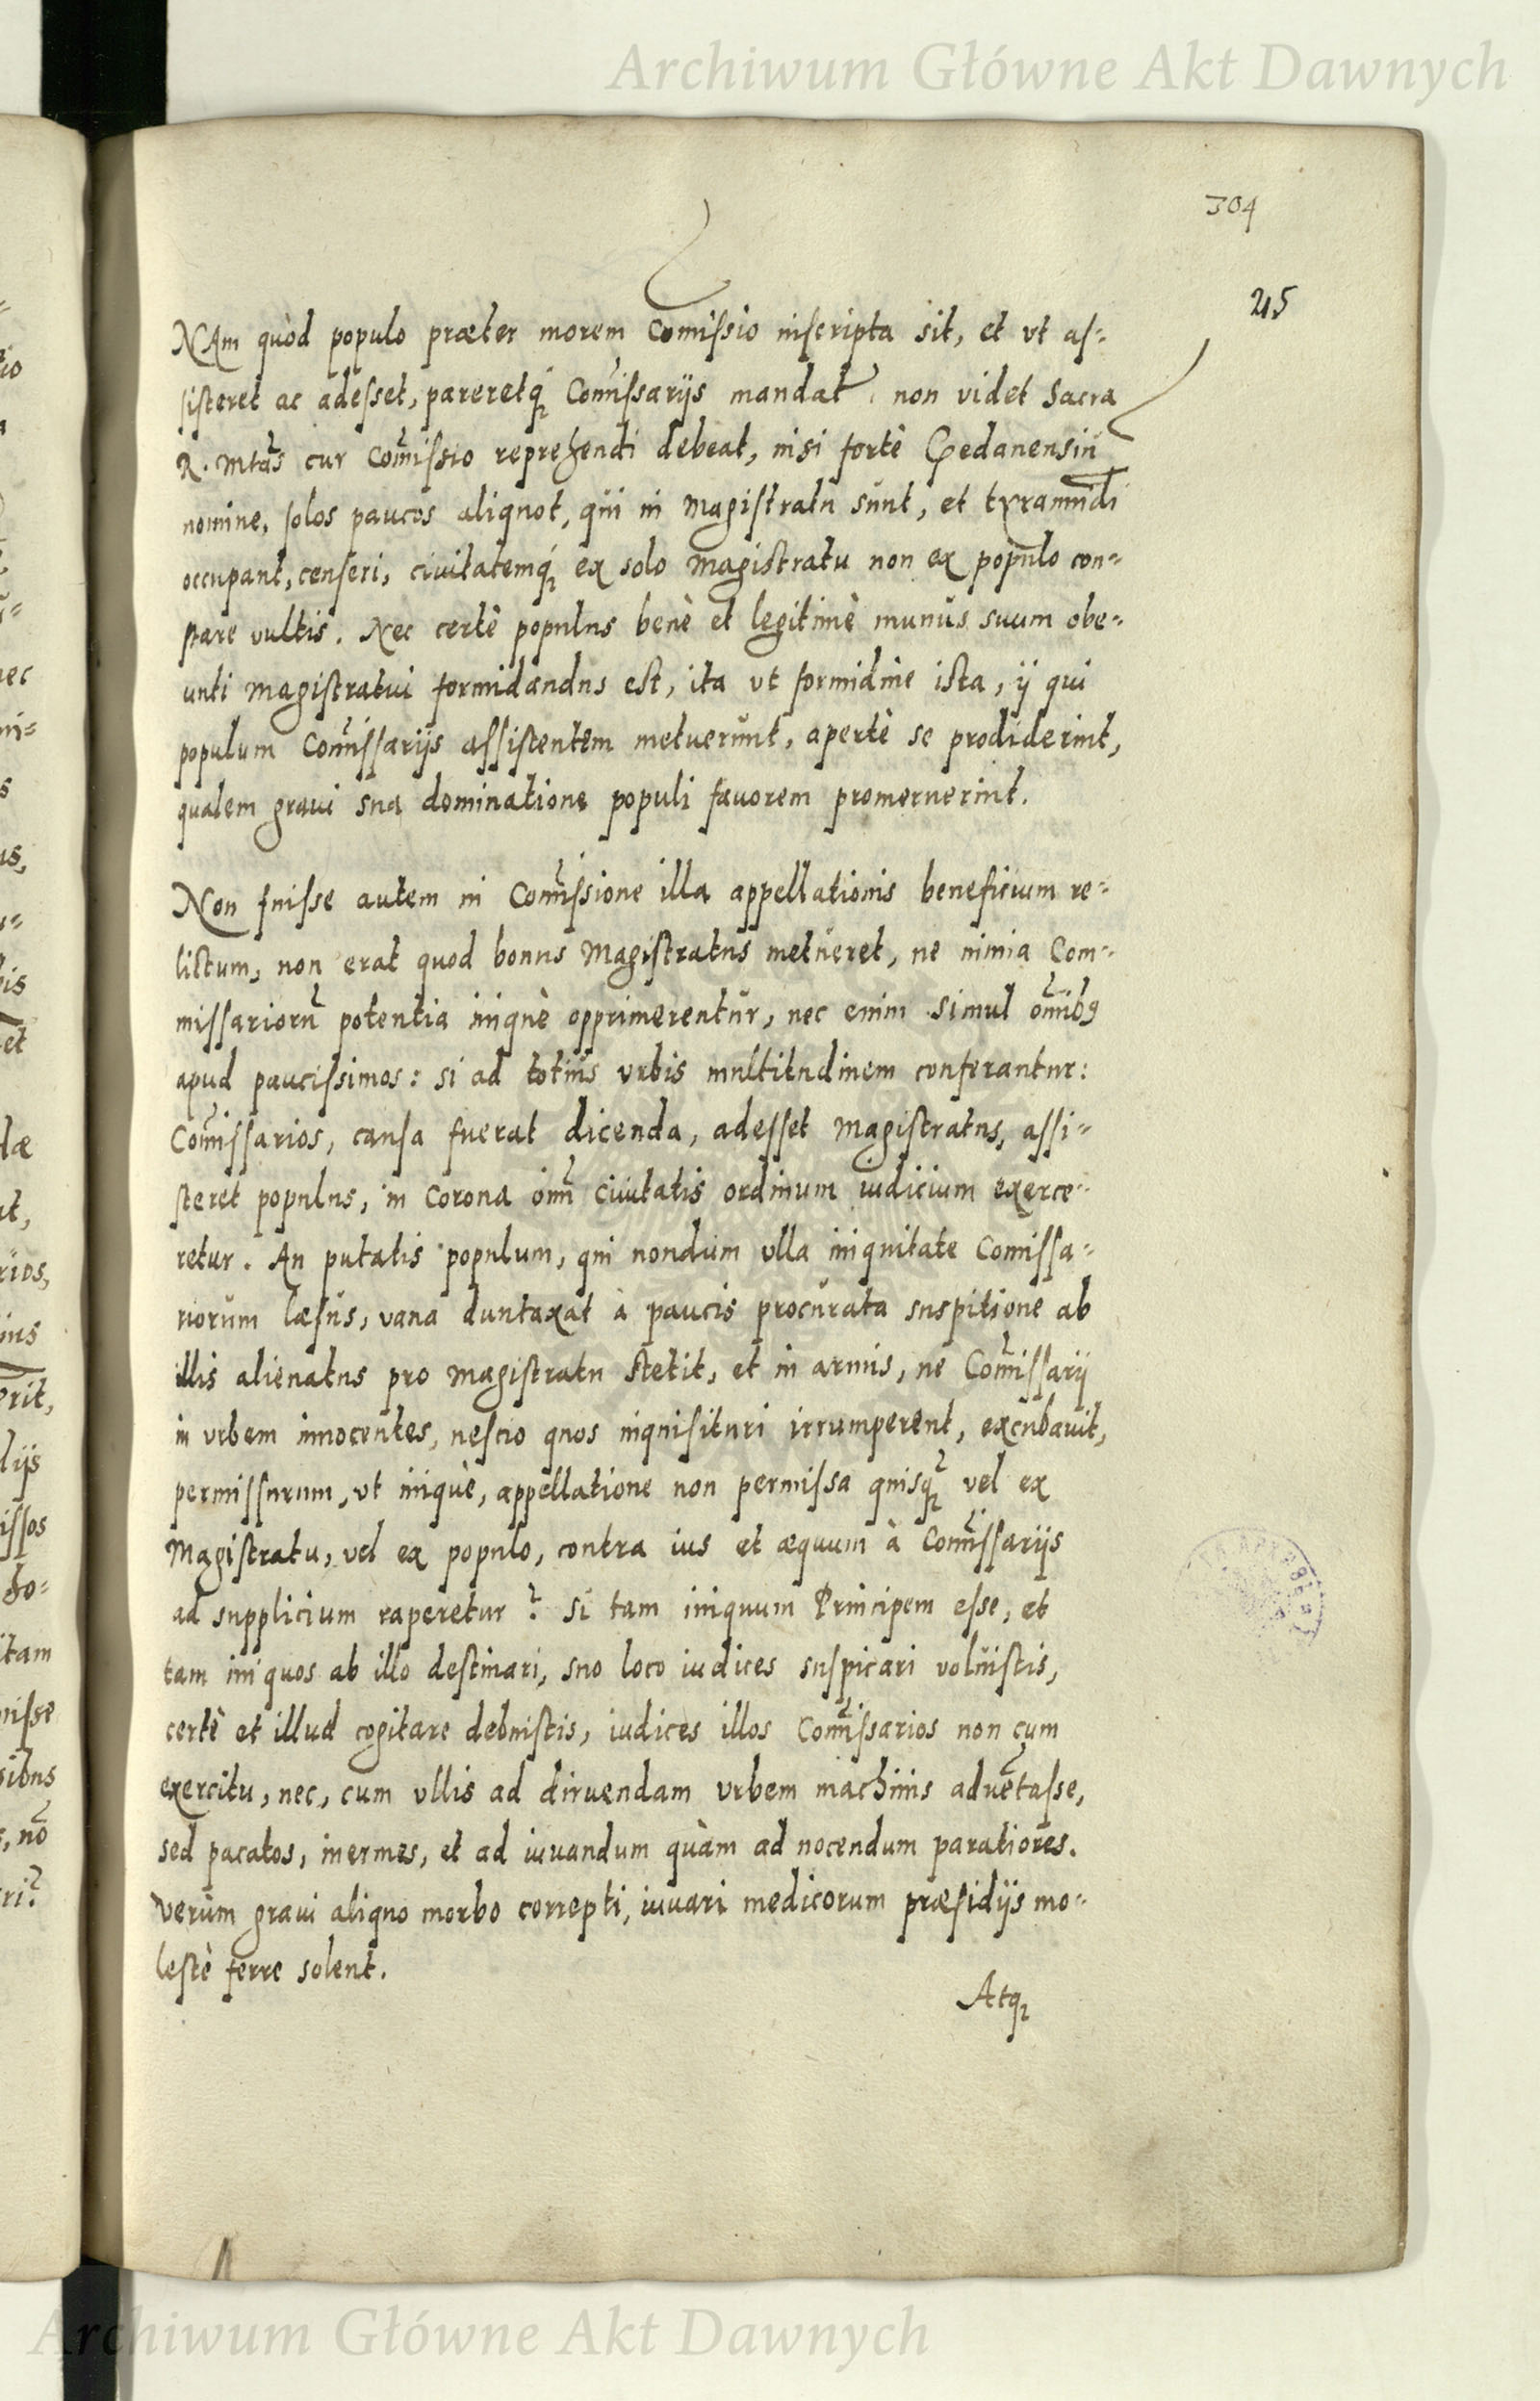 Archiwum Główne Akt Dawnych
304
215
NAm quòd populo præter morem Comissio inscripta sit, et vt as=
sisteret ac adesset, pareretq; Com̃issarijs mandat, non videt Sacra
R. Mtãs cur Com̃issio reprehendi debeat, nisi fortè Gedanensiũ
nomine, solos paucos aliquot, qui in Magistratu sunt, et tyrannidi
occupant, censeri, ciuitatemq; ex solo Magistratu non ex populo con=
stare vultis. Nec certè populus benè et legitimè munus suum obe=
unti Magistratui formidandus est, ita vt formidine ista, ij qui
populum Com̃issarijs assistentem metuerunt, apertè se prodiderint,
qualem graui sua dominatione populi fauorem promeruerint.
Non fuisse autem in Com̃issione illa appellationis beneficium re=
lictum, non erat quod bonus Magistratus metueret, ne nimia Com=
missariorũ potentia iniquè opprimerentur, nec enim simul om̃ibꝰ
apud paucissimos: si ad totius vrbis multitudinem conferantur:
Com̃issarios, causa fuerat dicenda, adesset Magistratus, assi=
steret populus, in Corona om̃ Ciuitatis ordinum iudicium exerce=
retur. An putatis populum, qui nondum vlla iniquitate Comissa=
riorum læsus, vana duntaxat à paucis procurata suspitione ab
illis alienatus pro Magistratu stetit, et in armis, ne Com̃issarij
in vrbem innocentes, nescio quos inquisituri irrumperent, excubauit,
permissurum, vt iniquè, appellatione non permissa quisq; vel ex
Magistratu, vel ex populo, contra ius et æquum à Com̃issarijs
ad supplicium raperetur? Si tam iniquum Principem esse, et
tam iniquos ab illo destinari, suo loco iudices suspicari voluistis,
certè et illud cogitare debuistis, iudices illos Com̃issarios non cum
exercitu, nec, cum vllis ad diruendam vrbem machinis aduẽtasse,
sed pacatos, inermes, et ad iuuandum quàm ad nocendum paratiores.
Verùm graui aliquo morbo correpti, iuuari medicorum præsidijs mo=
lestè ferre solent.
Atq;
Archiwum Główne Akt Dawnych